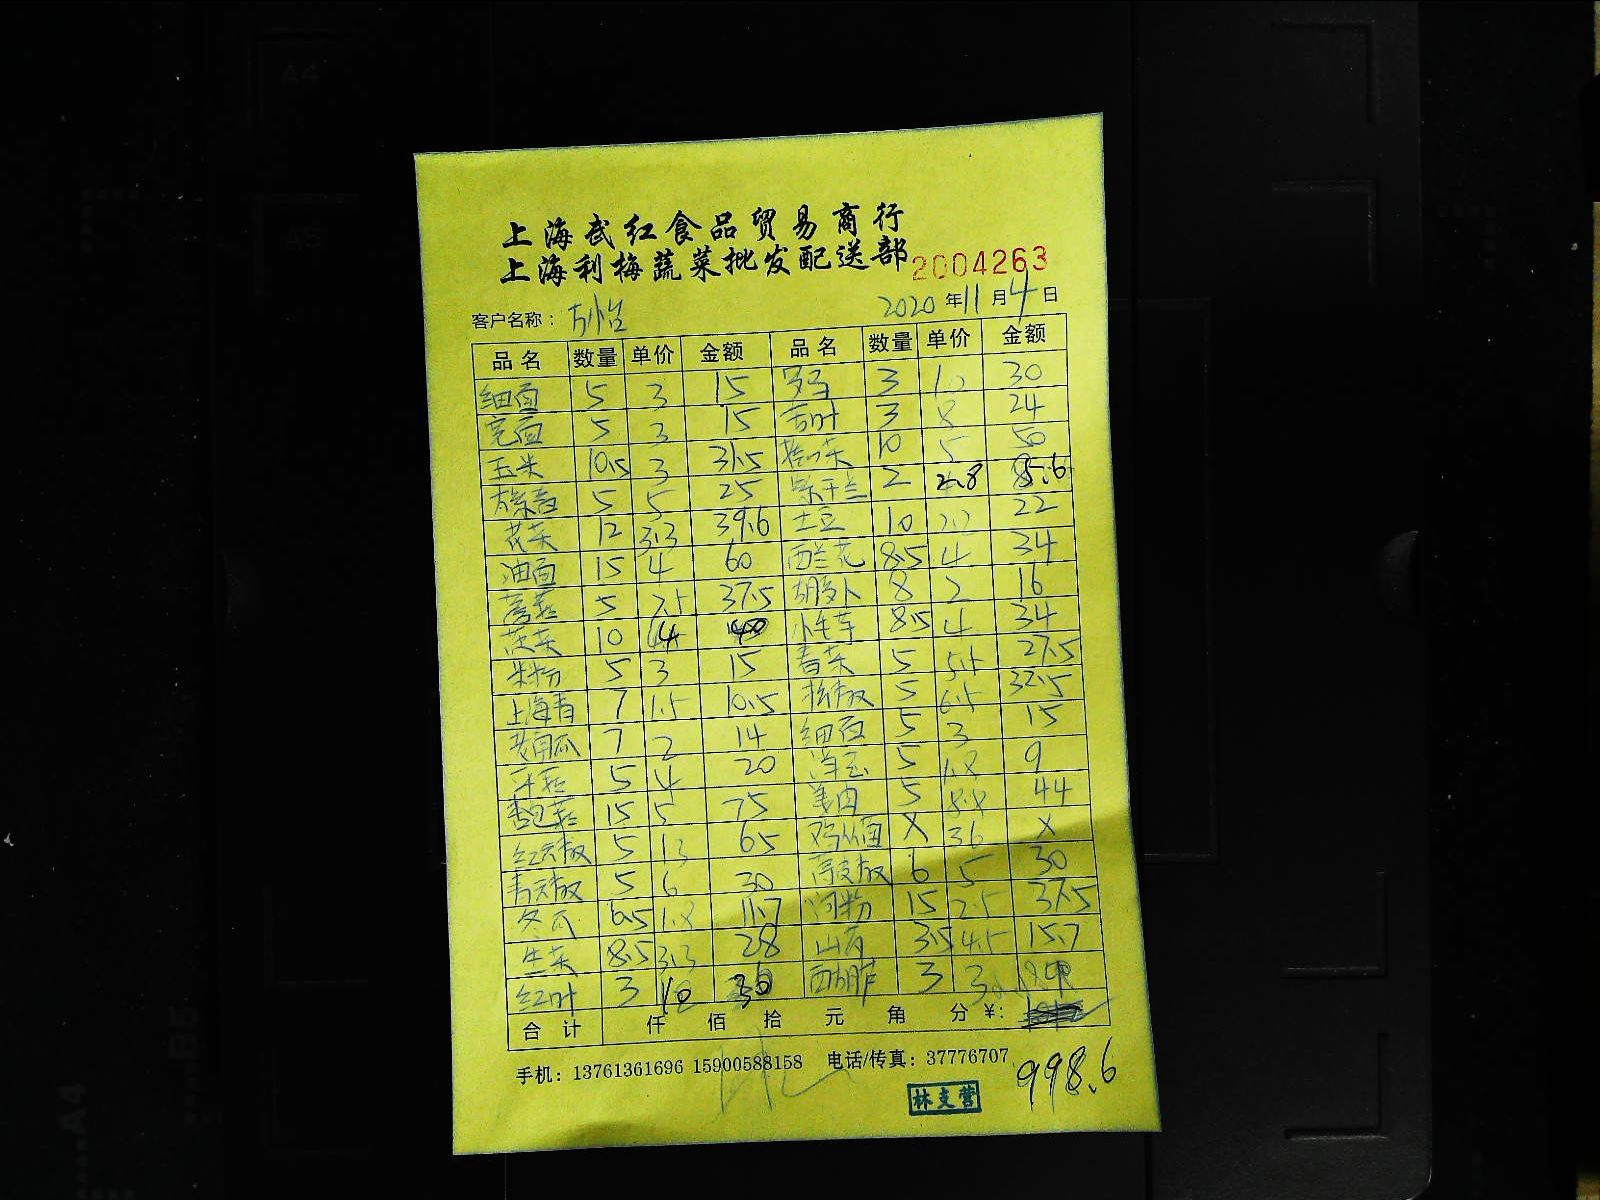 上海武红食品贸易商行
上海利梅蔬菜批发配送部 2004263
客户名称: 2020 年 11 月 4 日
品名 数量 单价 金额 品名 数量 单价 金额
细面 5 3 15 罗马 3 10 30
宽面 5 3 15 苦叶 3 8 24
玉米 10.5 3 31.5 10 5 50
5 5 25 2 85.6
花菜 12 3.3 39.6 土豆 10 2.2 22
油面 15 4 60 西兰花 8.5 4 34
5 7.5 37.5 胡萝卜 8 2 16
10 4 40 小毛草 8.5 4 34
米粉 5 3 15 香菜 5 5.5 27.5
上海青 7 1.5 10.5 5 6.5 32.5
老南瓜 7 2 14 细面 5 3 15
5 4 20 洋玉 5 1.8 9
杏包菇 15 5 75 姜肉 5 8.8 44
红尖椒 5 13 65 X 36 X
青尖椒 5 6 30 6 5 30
冬瓜 6.5 1.8 11.7 河粉 15 2.5 37.5
生菜 8.5 3.3 28 山药 3.5 4.5 15.7
红叶 3 10 30 西胡芦 3 3
合计 仟 佰 拾 元 角 分 ¥:
998.6
手机: 13761361696 15900588158 电话/传真: 37776707
林支营